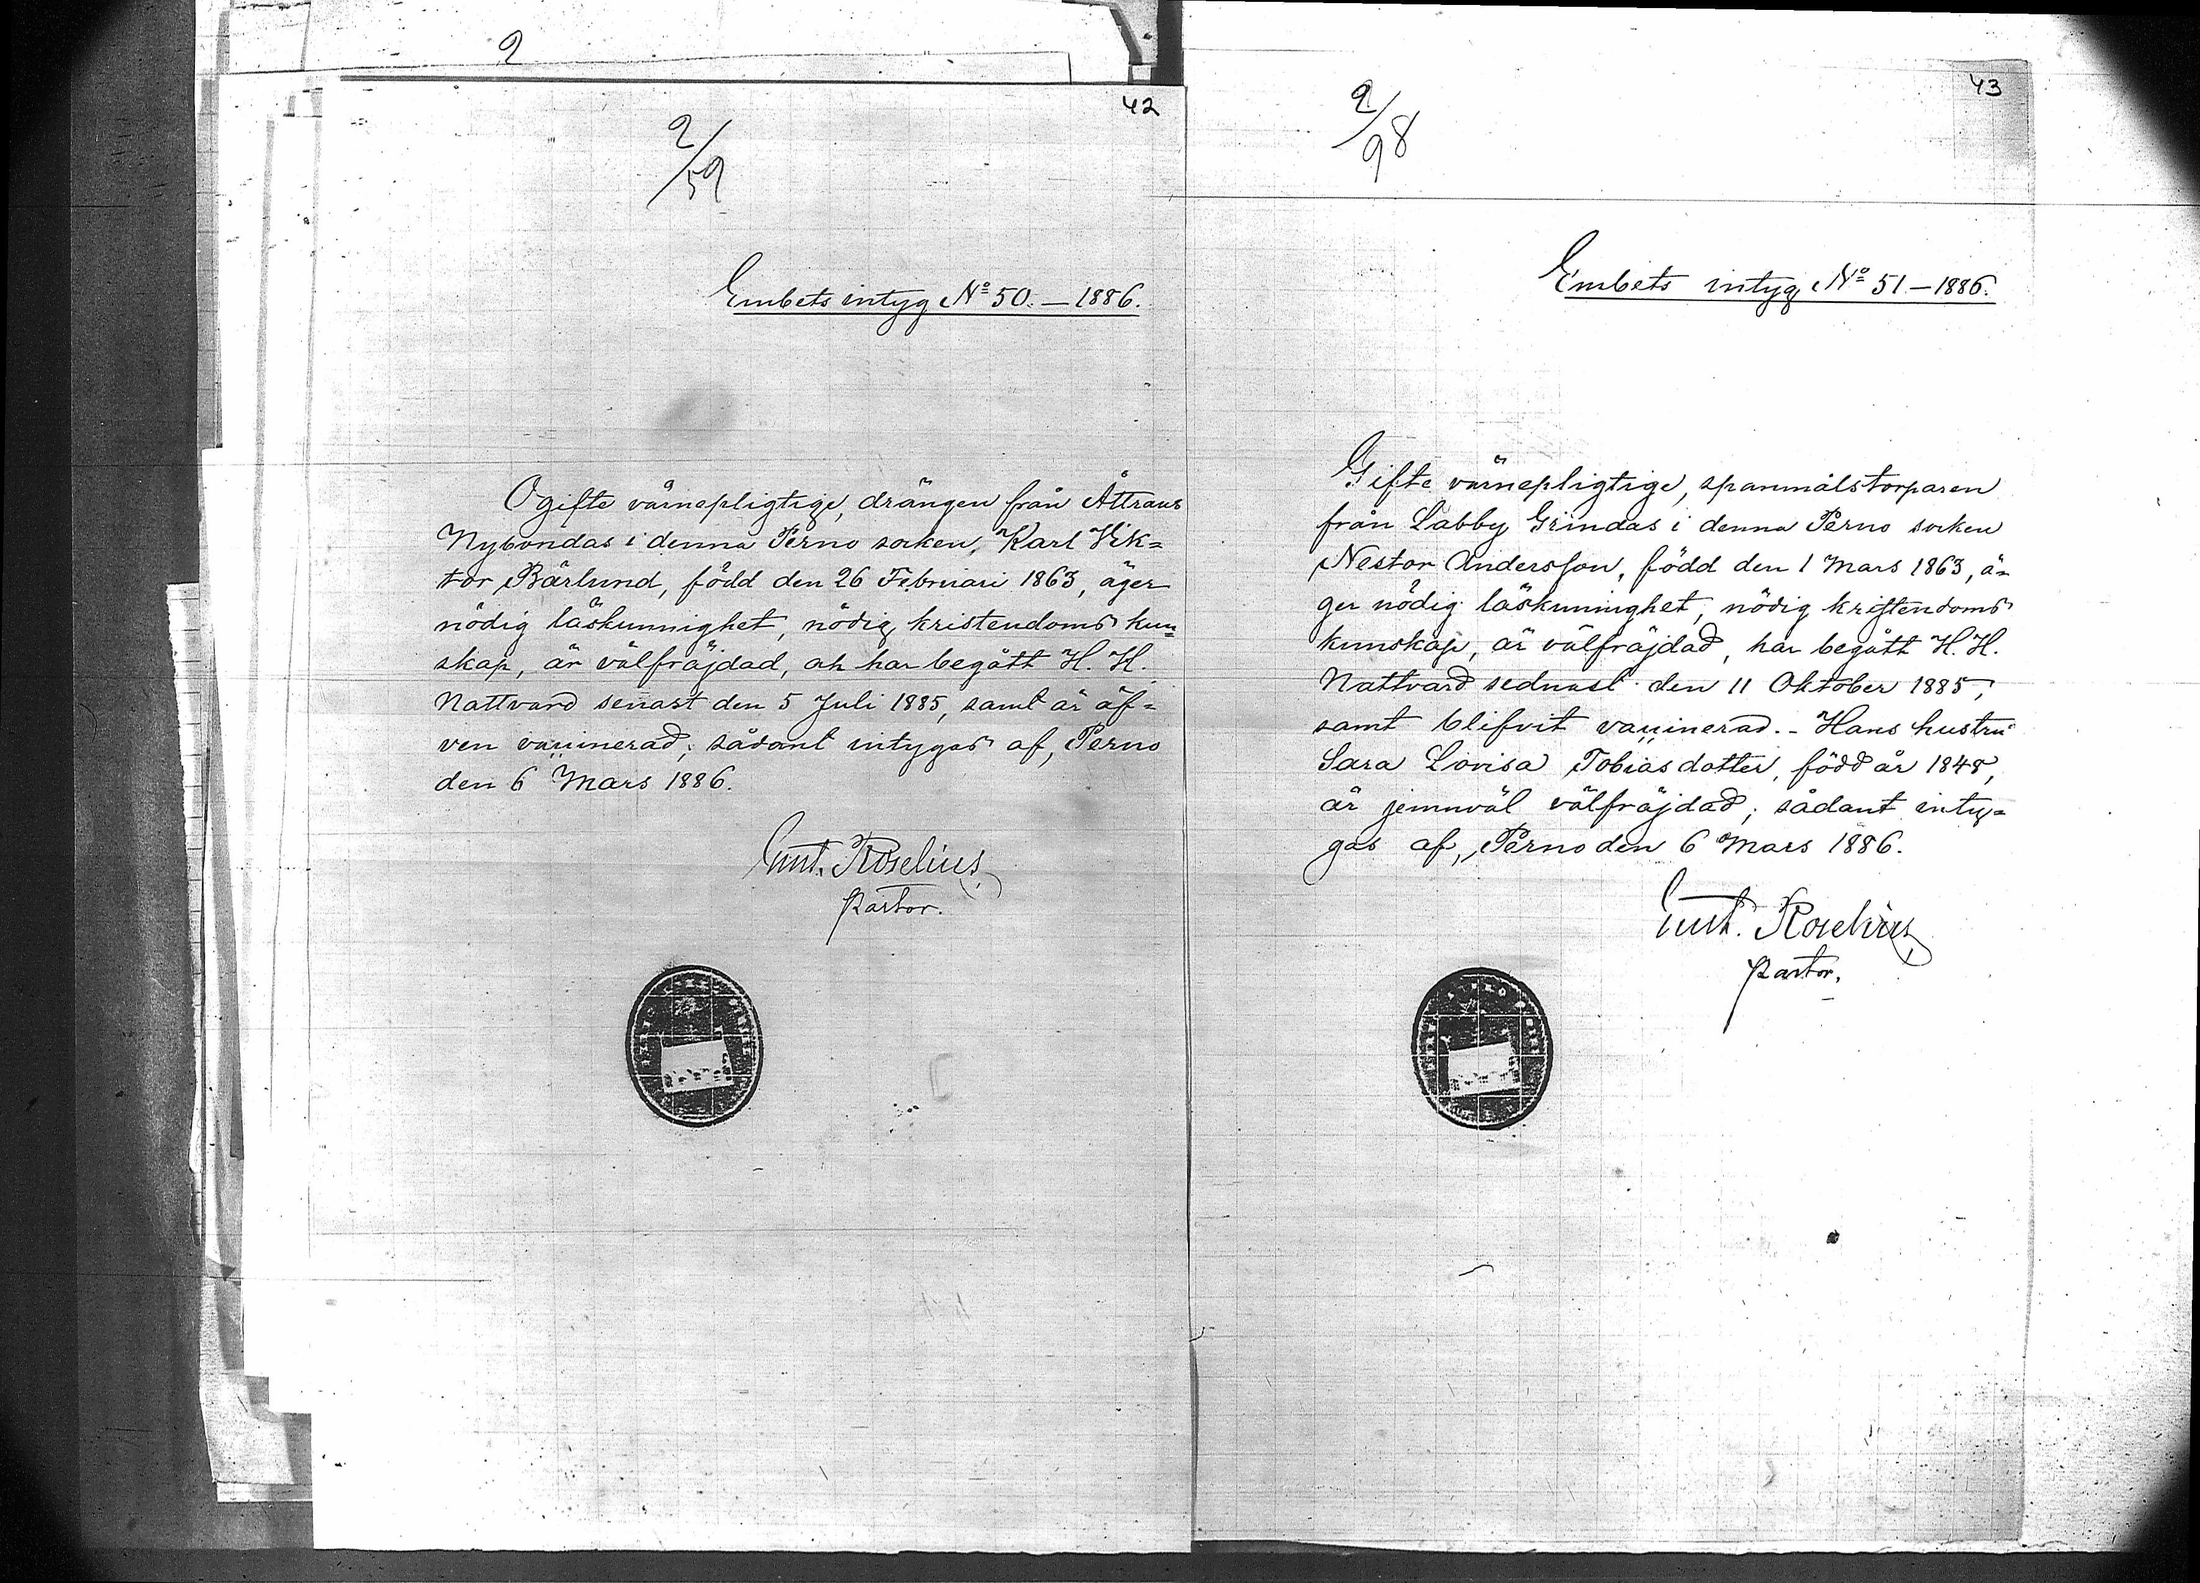 2
42
2/59
Embets intyg No 50. — 1886.
Ogifte värnepligtige, drängen från Åttraus
Nybondas i denna Perno socken, Karl Vik=
tor Bärlund, född den 26 Februari 1863, äger
nödig läskunnighet, nödig kristendoms kun=
skap, är välfräjdad, och har begått H. H.
Nattvard senast den 5 Juli 1885, samt är äf=
ven vaccinerad; sådant intygas af, Perno
den 6 Mars 1886.
Roselius
Pastor.
43
2/98
Embets intyg No 51 — 1886.
Gifte värnepligtige, spanmålstorparen
från Labby Grindas i denna Perno socken
Nestor Andersson, född den 1 Mars 1863, ä=
ger nödig läskunnighet, nödig kristendoms
kunskap, är välfräjdad, har begått H. H.
Nattvard sednast den 11 Oktober 1885,
samt blifvit vaccinerad. - Hans hustru
Sara Lovisa Tobiasdotter, född år 1848,
är jemnväl välfräjdad; sådant inty=
gas af, Perno den 6 Mars 1886.
Roselius
Pastor.